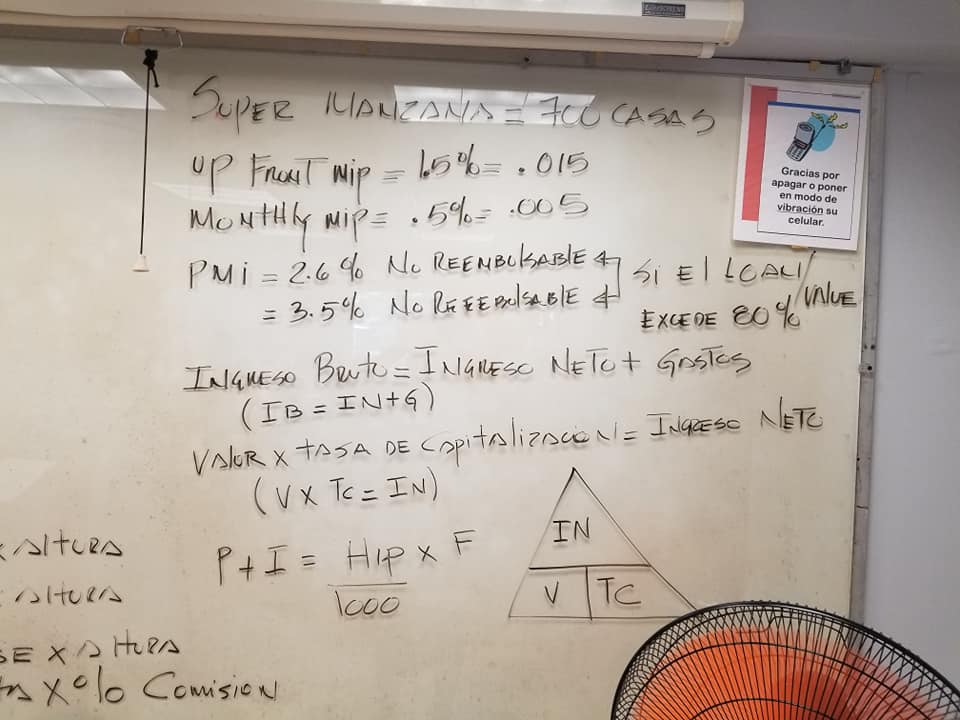 SUPER MANZANA = 700 CASAS
UP FRONT MIP = 1.5% = .015
MONTHLY MIP = .5% = .005
PMI = 2.6% NO REEMBOLSABLE
= 3.5% NO REEEBOLSABLE
SI El LOAN/VALUE
EXCEDE 80%
INGRESO BRUTO = INGRESO NETO + GASTOS
(IB = IN+G)
VALOR X TASA DE CAPITALIZACION = INGRESO NETO
(V X TC = IN)
P + I = HIP X F
1000
IN
V TC
X ALTURA
ALTURA
SE X ALTURA
TA X % COMISION
Gracias por
apagar o poner
en modo de
vibración su
celular.